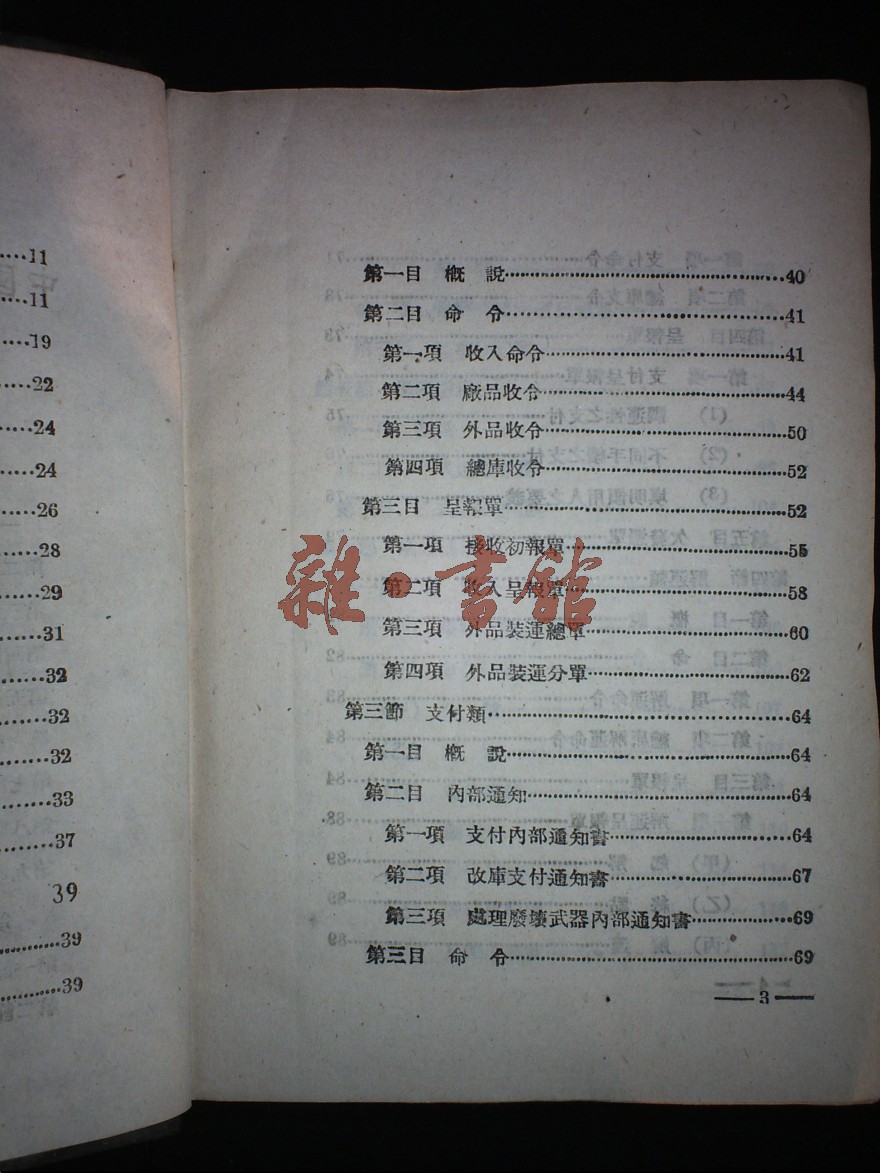 ……11
……11
……19
……22
……24
……24
……26
……28
……29
……31
……32
……32
……32
……33
……37
39
……39
……39
第一目 概 說……40
第二目 命 令……41
第一項 收入命令……41
第二項 廠品收令……44
第三項 外品收令……50
第四項 總庫收令……52
第三目 呈報單……52
第一項 接收初報單……55
第二項 收入呈報單……58
第三項 外品裝運總單……60
第四項 外品裝運分單……62
第三節 支付類……64
第一目 概 說……64
第二目 內部通知……64
第一項 支付內部通知書……64
第二項 改庫支付通知書……67
第三項 處理廢壞武器內部通知書……69
第三目 命 令……69
— 3 —
雜·書館